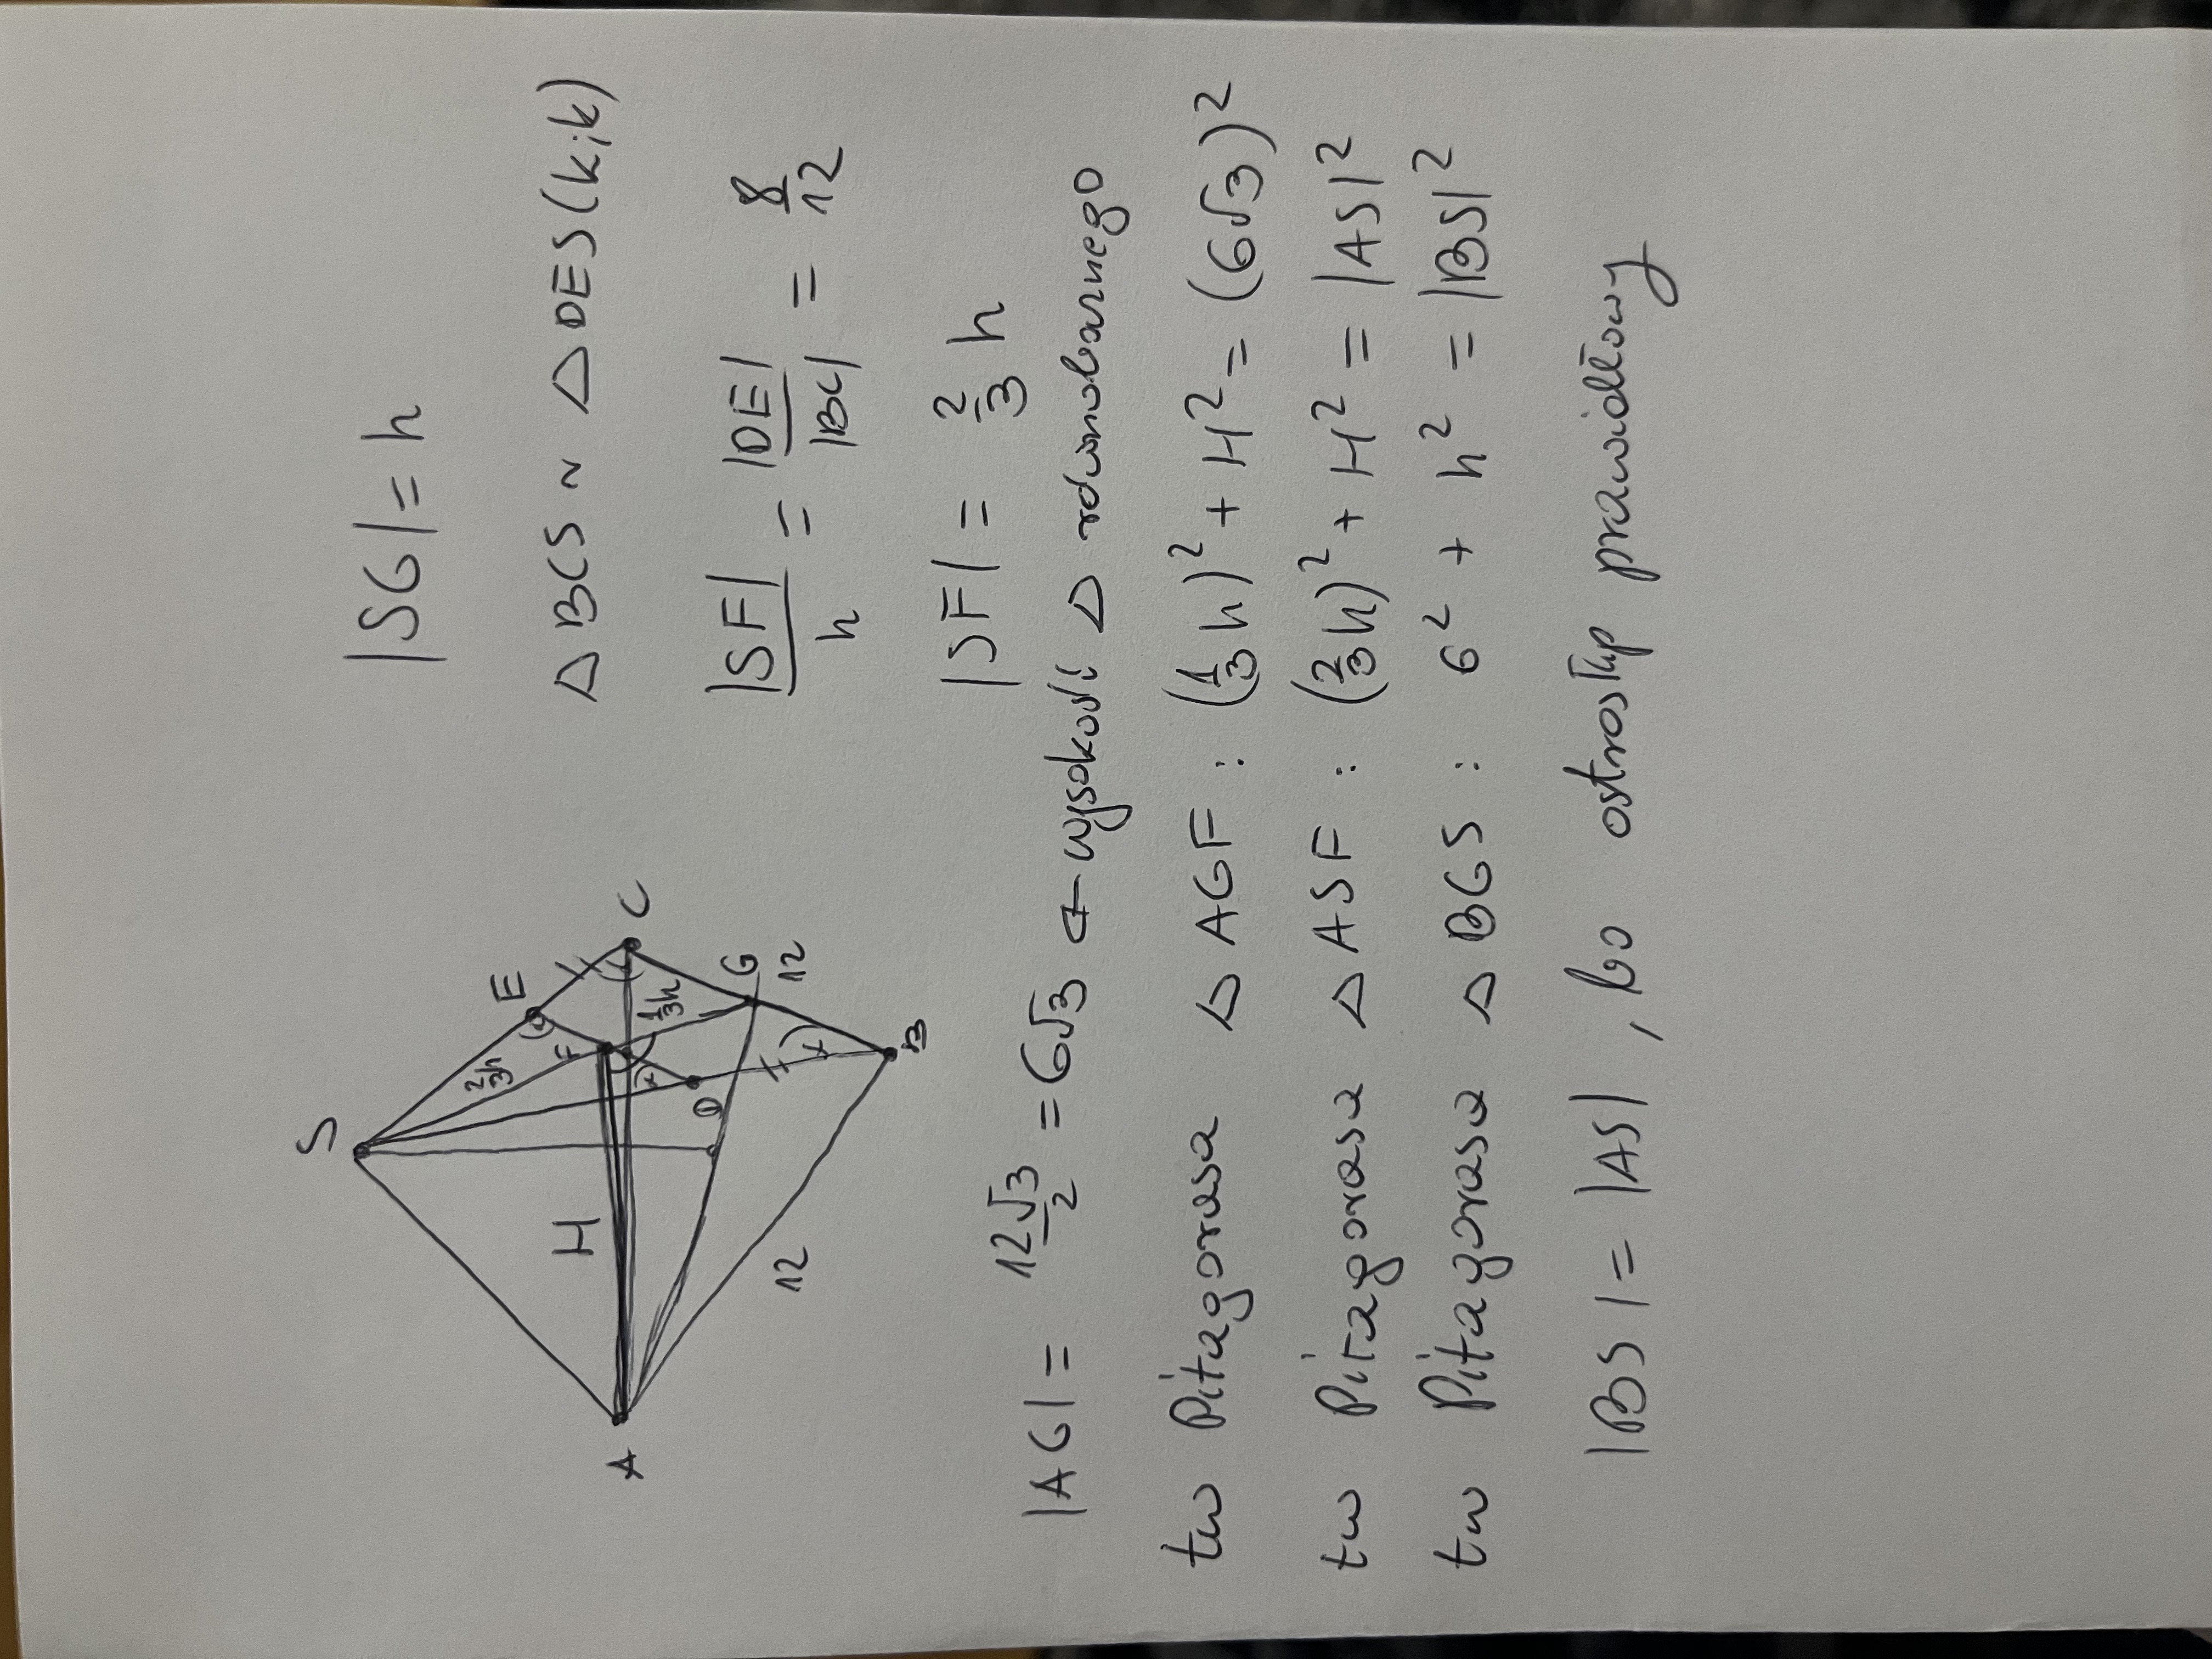 S
E
C
2/3h
F
H
1/3h
G
D
12
A
12
B
|SG| = h
△ BCS ~ △ DES (k,k)
|SF|/h = |DE|/|BC| = 8/12
|SF| = 2/3 h
|AG| = 12√3/2 = 6√3 ← wysokość △ równobocznego
tw Pitagorasa △ AGF : (1/3 h)² + H² = (6√3)²
tw Pitagorasa △ ASF : (2/3 h)² + H² = |AS|²
tw Pitagorasa △ BGS : 6² + h² = |BS|²
|BS| = |AS| , bo ostrosłup prawidłowy